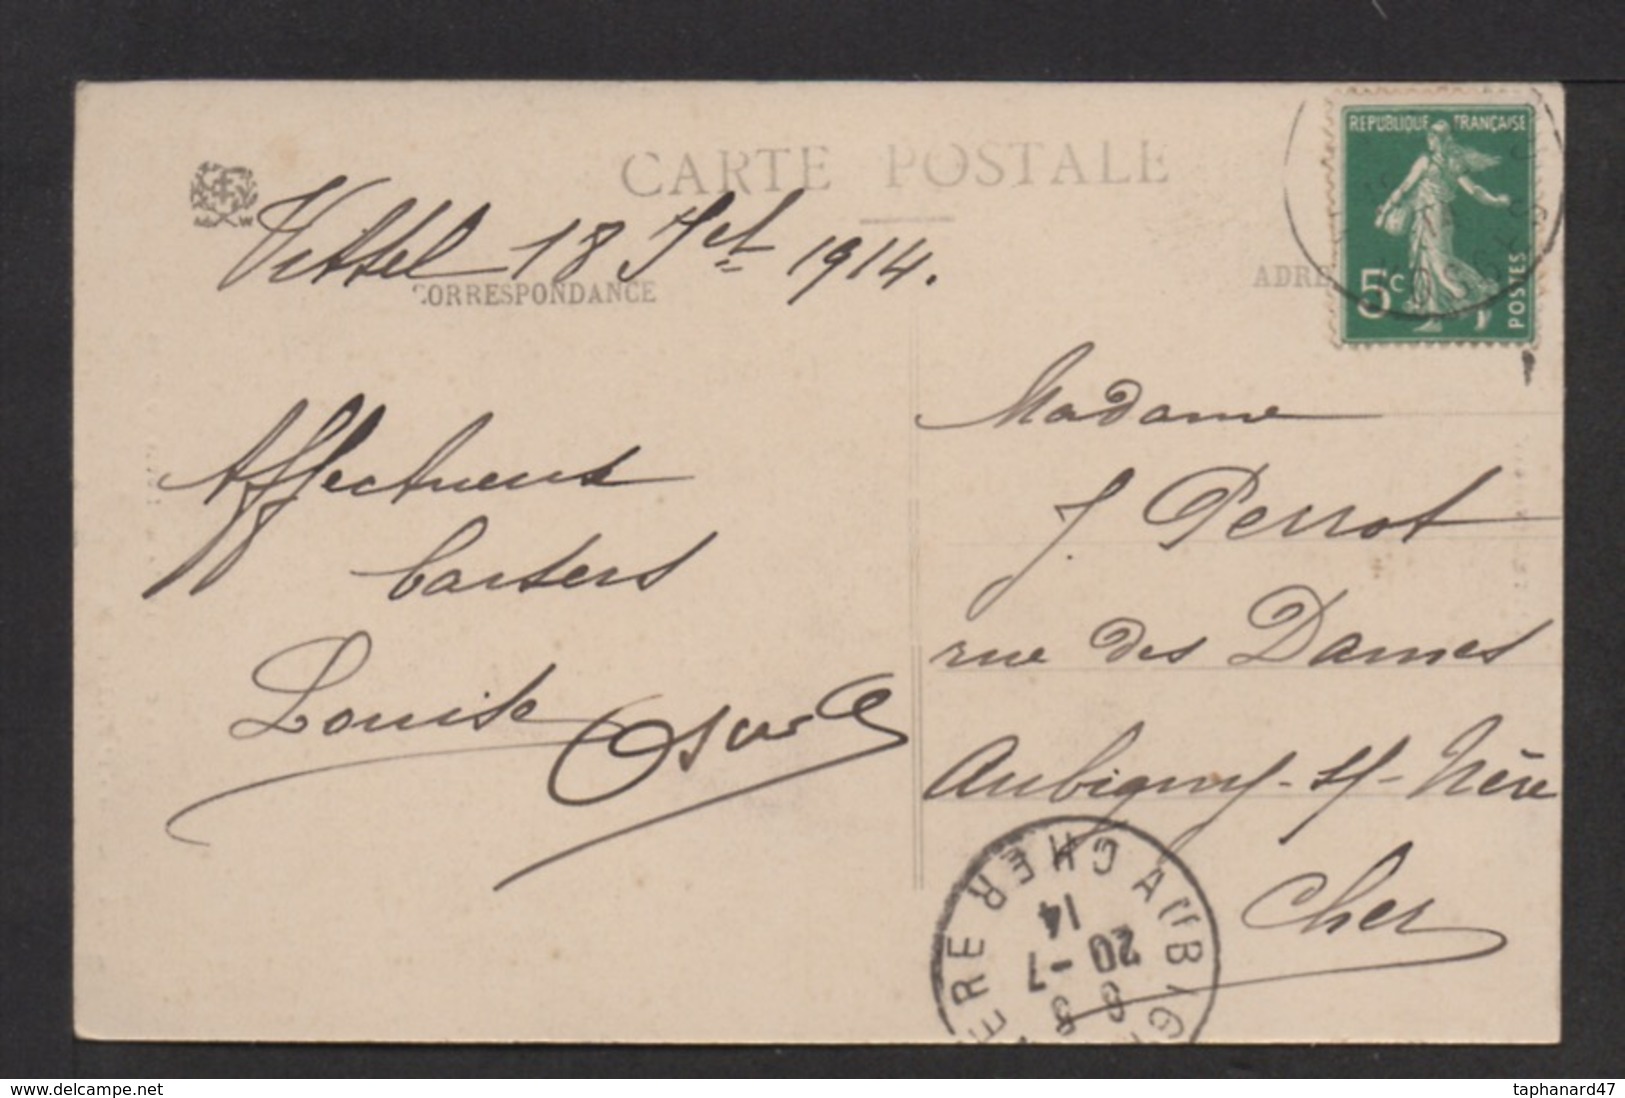 CARTE POSTALE
Vittel 18 Jet 1914.
CORRESPONDANCE
ADRE
REPUBLIQUE FRANÇAISE
5c
POSTES
Affectueux
baisers
Louise Oscar
Madame
J. Perrot
rue des Dames
Aubigny-s/-Nère
Cher
AUBIG
ERE CHER
6
20-7
14
www.delcampe.net
taphanard47